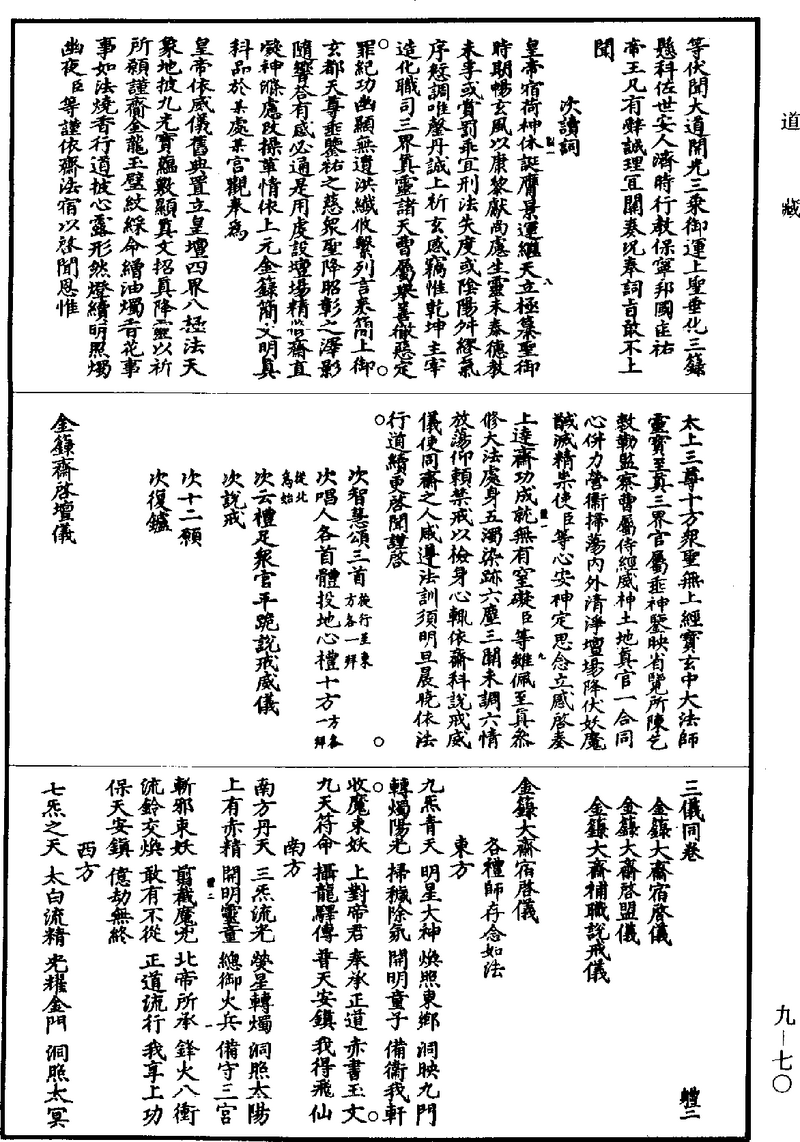 道藏
等伏聞大道開光三乘御運上聖垂化三籙
懸科佐世安人濟時行教保寧邦國匡祐
帝王凡有辭誠理宜關奏況奉詞旨敢不上
聞
次讀詞
皇帝宿荷神休誕膺景運繼天立極纂聖御
時期暢玄風以康黎獻尚慮生靈未泰德教
未孚或賞罰乖宜刑法失度或陰陽舛繆氣
序愆調唯罄丹誠上祈玄感竊惟乾坤主宰
造化職司三界真靈諸天曹屬舉善徹惡定
罪紀功幽顯無遺洪纖攸繫列言奏簡上御
玄都天尊垂鑒祐之慈眾聖降昭彰之澤影
隨響答有感必通是用虔設壇場精修齋直
凝神滌慮改操革情依上元金籙簡文明真
科品於某處某宮觀奉為
皇帝依威儀舊典置立皇壇四界八極法天
象地披九光寶蘊敷顯真文招真降靈以祈
所願謹齎金龍玉璧紋綵命繒油燭香花事
事如法燒香行道披心露形然燈續明照燭
幽夜臣等謹依齋法宿以啓聞恩惟
太上三尊十方眾聖無上經寶玄中大法師
靈寶至真三界官屬垂神鑒映省覽所陳乞
敕勒監察曹屬侍經威神土地真官一合同
心併力營衛掃蕩內外清淨壇場降伏妖魔
馘滅精祟使臣等心安神定思念立感啓奏
上達齋功成就無有窒礙臣等雖佩至真叅
修大法處身五濁染跡六塵三關未調六情
放蕩仰賴禁戒以檢身心輒依齋科說戒威
儀使同齋之人咸遵法訓須明旦晨晚依法
行道續更啓聞謹啓
次智慧頌三首旋行至東方各一拜
次唱人各首體投地心禮十方一方各一拜從北為始
次云禮足眾官平跪說戒威儀
次說戒
次十二願
次復鑪
金籙齋啓壇儀
三儀同卷 體二
金籙大齋宿啓儀
金籙大齋啓盟儀
金籙大齋補職說戒儀
金籙大齋宿啓儀
各禮師存念如法
東方
九炁青天 明星大神 煥照東鄉 洞映九門
轉燭陽光 掃穢除氛 開明童子 備衛我軒
收魔束妖 上對帝君 奉承正道 赤書玉文
九天符命 攝龍驛傳 普天安鎮 我得飛仙
南方
南方丹天 三炁流光 熒星轉燭 洞照太陽
上有赤精 開明靈童 總御火兵 備守三宮
斬邪束妖 剪截魔兇 北帝所承 鋒火八衝
流鈴交煥 敢有不從 正道流行 我享上功
保天安鎮 億劫無終
西方
七炁之天 太白流精 光耀金門 洞照太冥
九—七〇